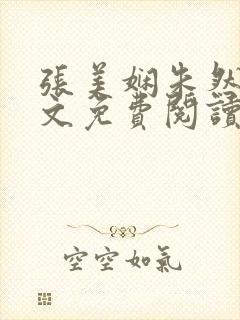 張美娴朱然
文免費閱讀
空空如氣